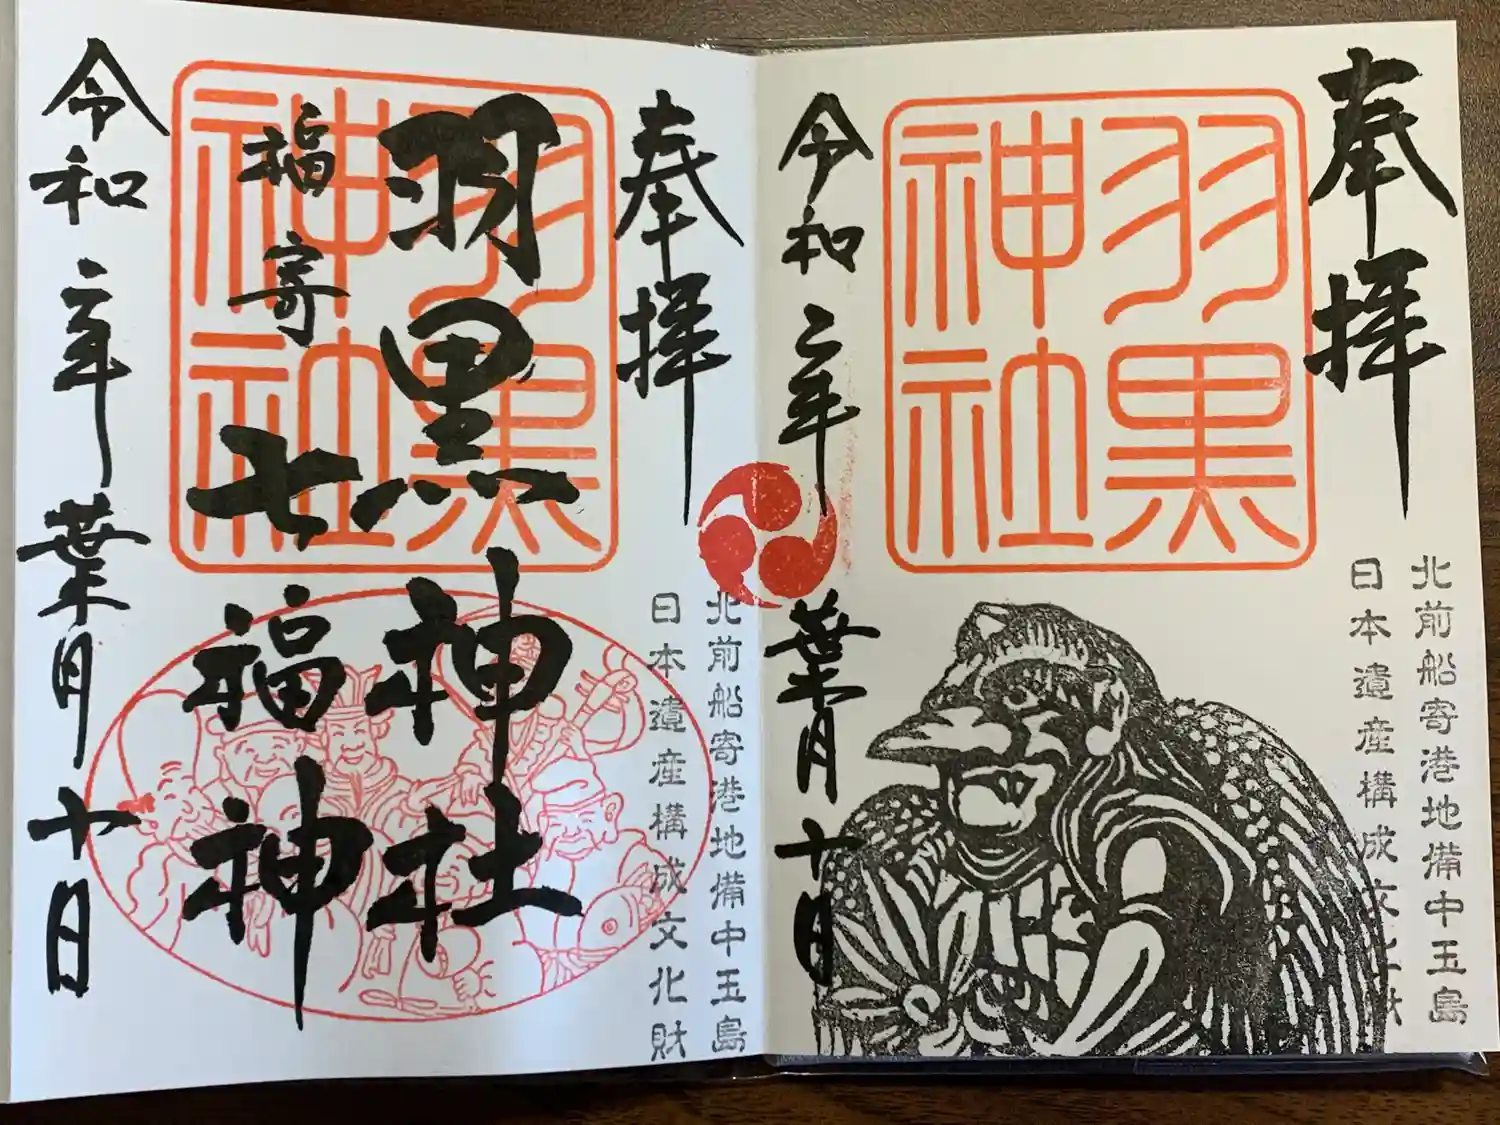 奉拝
羽黒
神社
北前船寄港地備中玉島
日本遺産構成文化財
令和二年
葉月十日
奉拝
羽黒
神社
羽黒神社
福寄
七福神
北前船寄港地備中玉島
日本遺産構成文化財
令和二年葉月十日